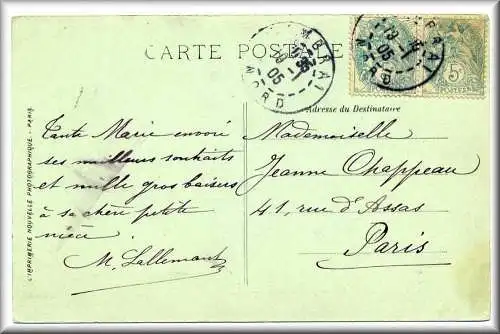 CARTE POSTALE
CAMBRAI
NORD
5
POSTES
Adresse du Destinataire
Tante Marie envoie
ses meilleurs souhaits
et mille gros baisers
à sa chère petite
nièce
M. Lallemant
Mademoiselle
Jeanne Chappeau
41, rue d'Assas
Paris
L'IMPRIMERIE NOUVELLE PHOTOGRAPHIQUE - PARIS